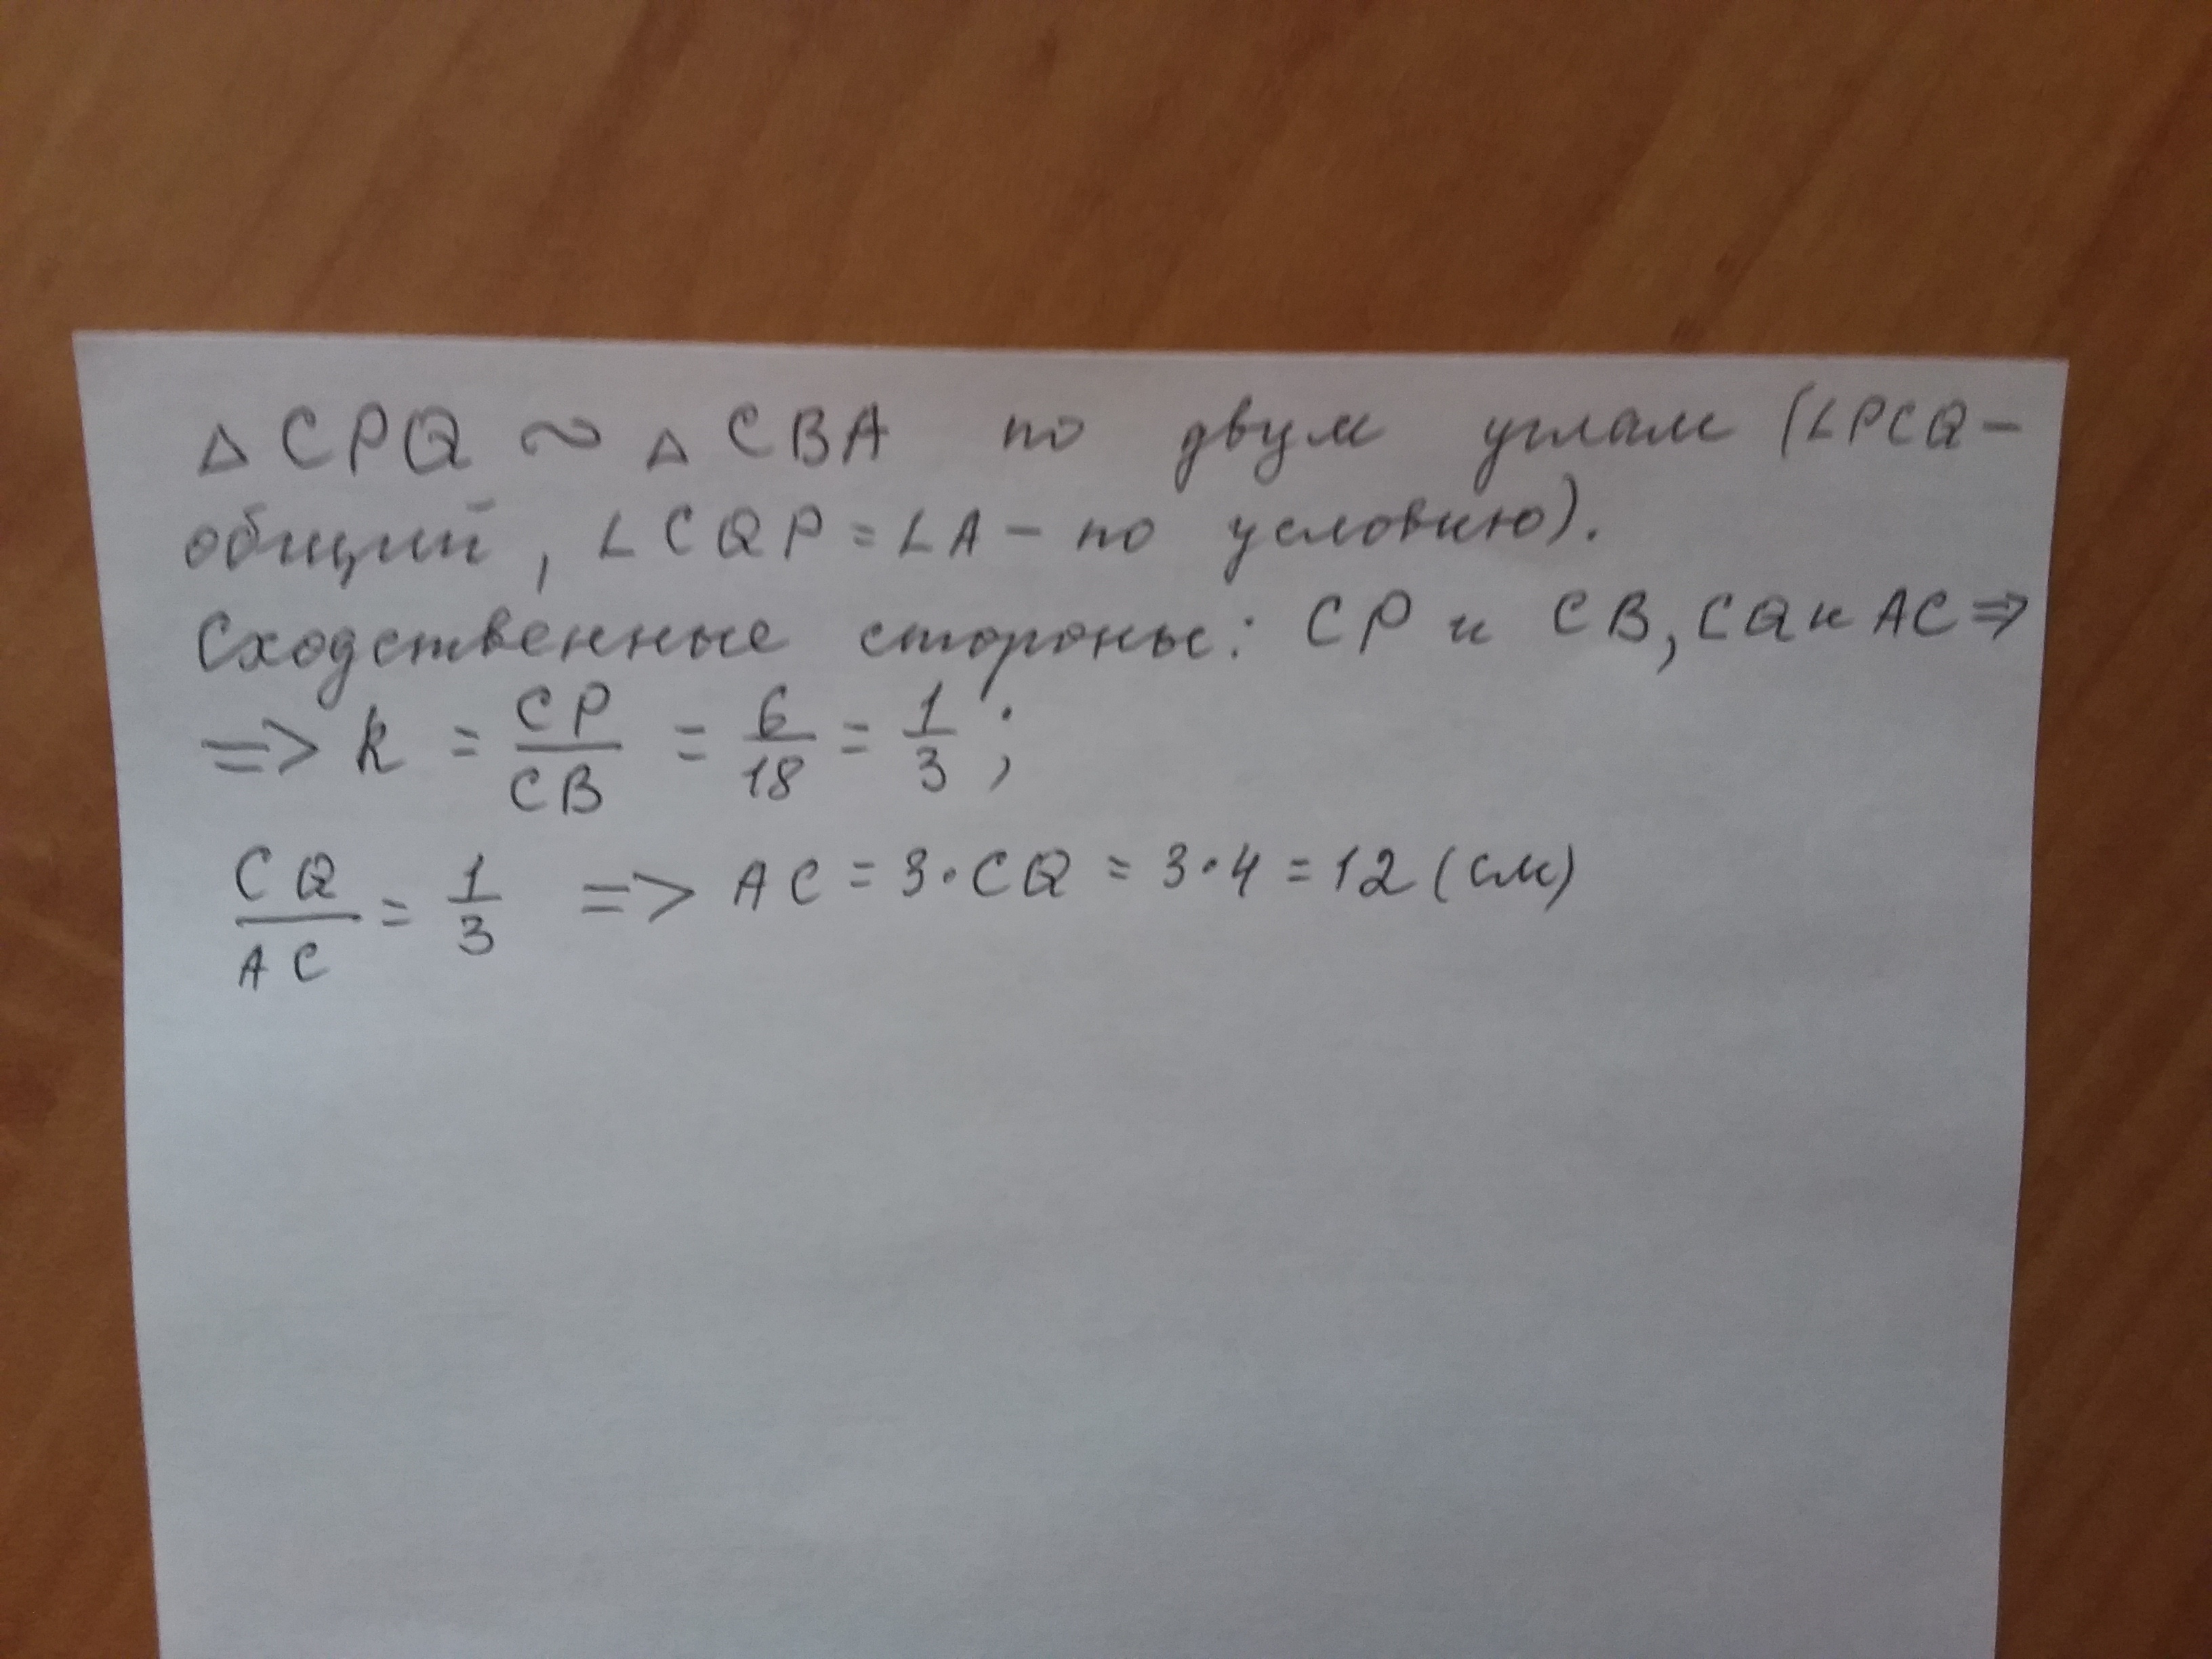 △CPQ ∾ △CBA по двум углам (∠PCQ –
общий, ∠CQP = ∠A – по условию).
Сходственные стороны: CP и CB, CQ и AC ⇒
=> k = CP/CB = 6/18 = 1/3;
CQ/AC = 1/3 => AC = 3·CQ = 3·4 = 12 (см)